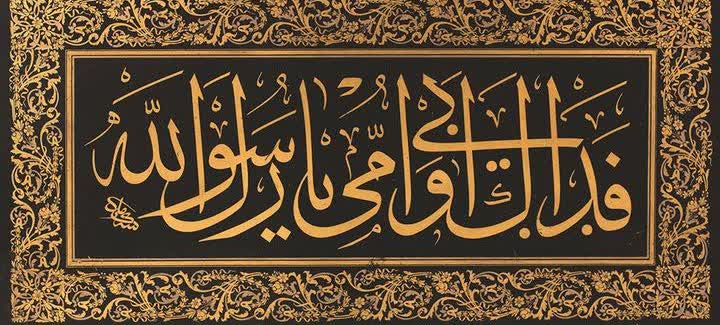 فَدَاكَ اَبِى وَاُمِّى يَا رَسُولَ اللّٰه